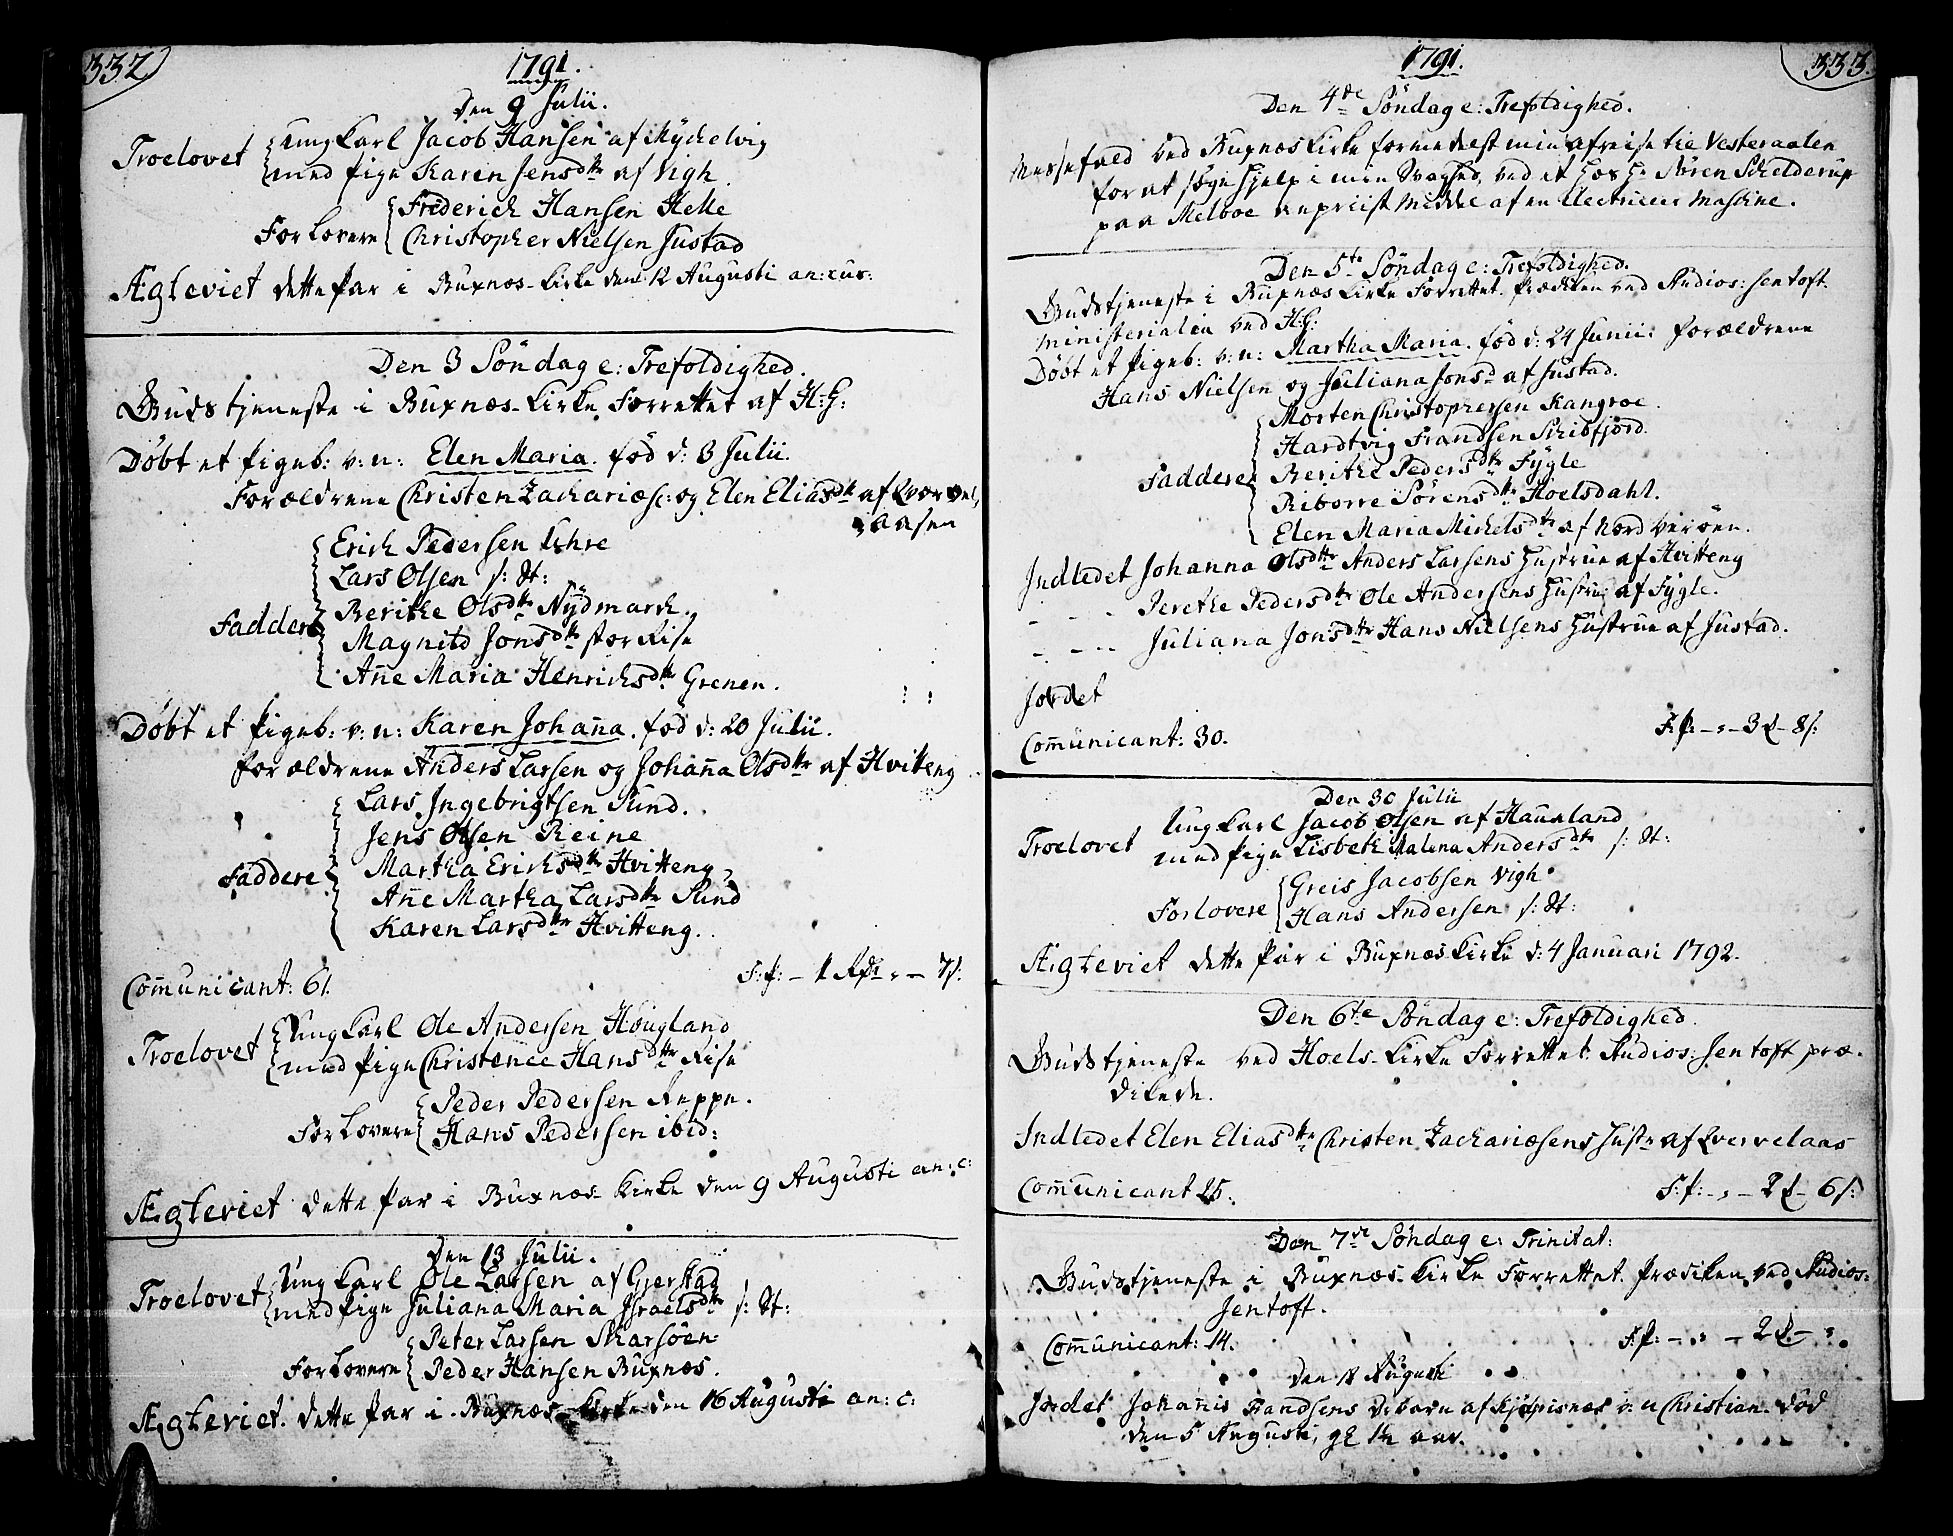 332
1791.
Den 9 Julii.
Troelovet Ung Karl Jacob Hansen af Myckelvig
med Pige Karen Jensdtr af Vigh
Forlovere Friderich Hansen Helle
Christopher Nielsen Justad
Ægteviet dette Par i Buxnæs-Kirke den 12 Augusti an: cur:
Den 3 Søndag e: Trefoldighed.
Gudstjeneste i Buxnæs-Kirke Forrettet af H: G:
Døbt et Pigeb: v: n: Elen Maria. fød d: 3 Julii.
Forældrene Christen Zachariæs: og Elen Eliasdtr af Qværvel,
aasen
Erich Pedersen Lehre
Lars Olsen s: St:
Faddere Berithe Olsdtr Nÿdmarch.
Magnild Jonsdtr stor Rise
Añe Maria Henrichsdtr Grenen.
Døbt et Pigeb: v: n: Karen Johaña. fød d: 20 Julii.
forældrene Anders Larsen og Johaña Olsdtr af Hvitteng
Lars Ingebrigtsen Sund.
Jens Olsen Reine
Faddere Martha Erichsdtr Hvitteng,
Añe Martha Larsdtr Sund
Karen Larsdtr Hvitteng.
Com̄unicant: 61. F: f: – 1 Rdr „ – 7 s:
Troelovet Ung Karl Ole Andersen Hougland
med Pige Christence Hansdtr Rise
Forlovere Peder Pedersen Reppe.
Hans Pedersen ibid:
Ægteviet dette Par i Buxnæs Kirke den 9 Augusti an: c:
Den 13 Julii.
Troelovet Ung Karl Ole Larsen af Gjerstad
med Pige Juliana Maria Israelsdtr s: St:
Forlovere Peter Larsen Skarsøen
Peder Hansen Buxnæs.
Ægteviet. dette Par i Buxnæs Kirke den 16 Augusti an: c:
333.
1791.
Den 4de Søndag e: Trefoldighed.
Messefald ved Buxnæs Kirke formedelst min afreise til Vesteraalen
for at søge Hjelp i min Svaghed, ved et hos Hr Søren Schelderup
paa Melboe anpriist Middel af en Electriceer Maschine.
Den 5te Søndag e: Trefoldighed.
Gudstjeneste i Buxnæs Kirke Forrettet. Prædiken ved Studios: Jentoft.
Ministerialia ved H: G:
Døbt et Pigeb: v: n: Martha Maria. fød d: 24 Junii: forældrene
Hans Nielsen og Juliana Jonsd af Justad.
Morten Christophersen Kangroe.
Hardtvig Frandsen Schibfjord.
Faddere Berithe Pedersdtr Fÿgle
Riborre Sørensdtr Hoelsdahl.
Elen Maria Michelsdtr af Nord Værøen.
Indledet Johanna Olsdtr Anders Larsens Hustrue af Hvitteng
- - - Perethe Pedersdtr Ole Andersens Hustrue af Fÿgle.
- - - Juliana Jonsdtr Hans Nielsens Hustrue af Justad.
Jordet
Com̄unicant: 30. F: f: – „ – 3 L – 8 s:
Den 30 Julii
Troelovet Ung Karl Jacob Olsen af Hauxland
med Pige Lisbeth Malena Andersdtr s: St:
Forlovere Greis Jacobsen Vigh
Hans Andersen s: St:
Ægteviet dette Par i Buxnæs Kirke d: 4 Januari 1792.
Den 6te Søndag e: Trefoldighed.
Gudstjeneste ved Hoels-Kirke Forrettet. Studios: Jentoft præ-
dikede.
Indledet Elen Eliasdtr Christen Zachariæsens Hustr af Qvervelaas
Com̄unicant 25. F: f: – „ – 2 L – 6 s:
Den 7de Søndag e: Trinitat:
Gudstjeneste i Buxnæs-Kirke Forrettet. Prædiken ved Studios:
Jentoft.
Com̄unicant: 14. F: f: – „ – 2 L – „.
Den Augusti
Jordet Johañis Frandsens af v: n Christian. død
den 5 Augusti, gl aar.